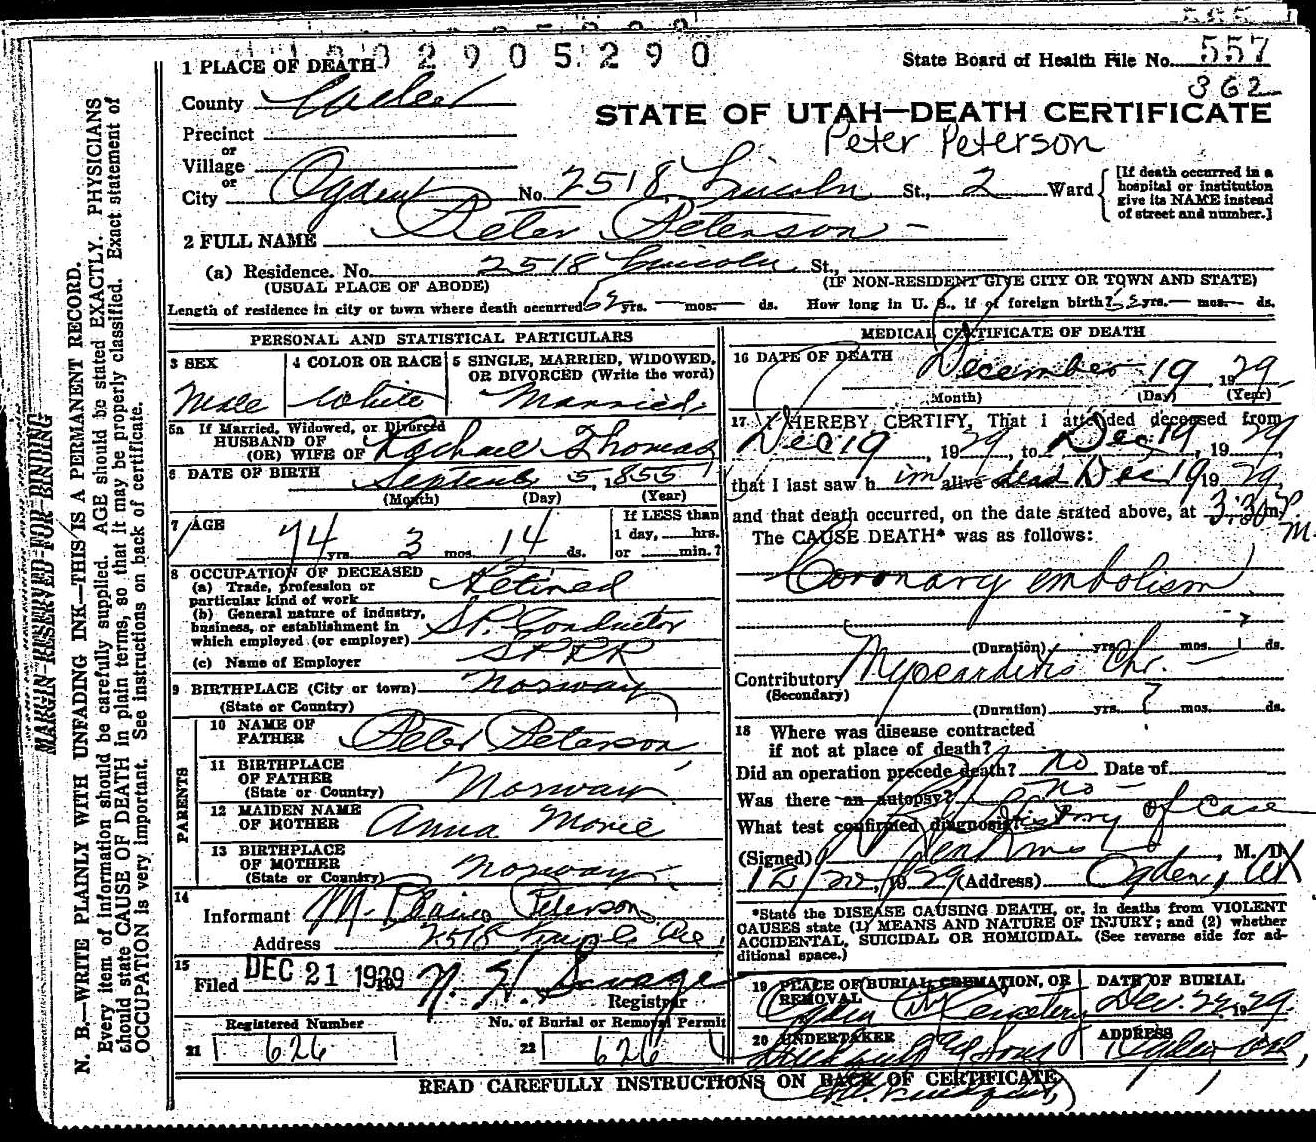 1 1 0 0 2 9 0 5 2 9 0
State Board of Health File No. 557
362
1 PLACE OF DEATH
County Weber
STATE OF UTAH—DEATH CERTIFICATE
Precinct
Peter Peterson
or
Village
or
City Ogden No. 2518 Lincoln St., 2 Ward
[If death occurred in a hospital or institution give its NAME instead of street and number.]
2 FULL NAME Peter Peterson
(a) Residence. No. 2518 Lincoln St.,
(USUAL PLACE OF ABODE) (IF NON-RESIDENT GIVE CITY OR TOWN AND STATE)
Length of residence in city or town where death occurred 62 yrs. — mos. — ds. How long in U. S., if of foreign birth? 62 yrs. — mos. — ds.
PERSONAL AND STATISTICAL PARTICULARS
3 SEX
Male
4 COLOR OR RACE
White
5 SINGLE, MARRIED, WIDOWED, OR DIVORCED (Write the word)
Married
5a If Married, Widowed, or Divorced
HUSBAND OF
(OR) WIFE OF Rachael Thomas
6 DATE OF BIRTH September 5, 1855
(Month) (Day) (Year)
7 AGE
74 yrs. 3 mos. 14 ds.
If LESS than
1 day, hrs.
or min.?
8 OCCUPATION OF DECEASED
(a) Trade, profession or
particular kind of work Retired
(b) General nature of industry,
business, or establishment in
which employed (or employer) S.P. Conductor
(c) Name of Employer SPRR
9 BIRTHPLACE (City or town) Norway
(State or Country)
PARENTS
10 NAME OF
FATHER Peter Peterson
11 BIRTHPLACE
OF FATHER
(State or Country) Norway
12 MAIDEN NAME
OF MOTHER Anna Marie
13 BIRTHPLACE
OF MOTHER
(State or Country) Norway
14
Informant M. Blaine Peterson
Address 2518 Ave.
15
Filed DEC 21 1929 N. H. Savage
Registrar
Registered Number
21 626
No. of Burial or Removal Permit
22 626
MEDICAL CERTIFICATE OF DEATH
16 DATE OF DEATH
December 19 1929
(Month) (Day) (Year)
17 I HEREBY CERTIFY, That I attended deceased from
Dec 19, 1929, to Dec. 19, 1929
that I last saw h im alive dead Dec 19 1929,
and that death occurred, on the date stated above, at 3:30 P. m.
M.
The CAUSE DEATH* was as follows:
Coronary embolism
(Duration) yrs. mos. ds.
Contributory Myocarditis Chr.
(Secondary)
(Duration) yrs. ? mos. ds.
18 Where was disease contracted
if not at place of death?
Did an operation precede death? no Date of
Was there an autopsy? no
What test confirmed diagnosis? History of case
(Signed) , M. D.
12/20, 1929 (Address) Ogden, Ut
*State the DISEASE CAUSING DEATH, or, in deaths from VIOLENT
CAUSES state (1) MEANS AND NATURE OF INJURY; and (2) whether
ACCIDENTAL, SUICIDAL OR HOMICIDAL. (See reverse side for ad-
ditional space.)
19 PLACE OF BURIAL, CREMATION, OR
REMOVAL
Ogden City Cemetery
DATE OF BURIAL
Dec. 22, 1929.
20 UNDERTAKER
& Sons
ADDRESS
Ogden
READ CAREFULLY INSTRUCTIONS ON BACK OF CERTIFICATE
MARGIN RESERVED FOR BINDING
N. B.—WRITE PLAINLY WITH UNFADING INK—THIS IS A PERMANENT RECORD.
Every item of information should be carefully supplied. AGE should be stated EXACTLY. PHYSICIANS
should state CAUSE OF DEATH in plain terms, so that it may be properly classified. Exact statement of
OCCUPATION is very important. See instructions on back of certificate.